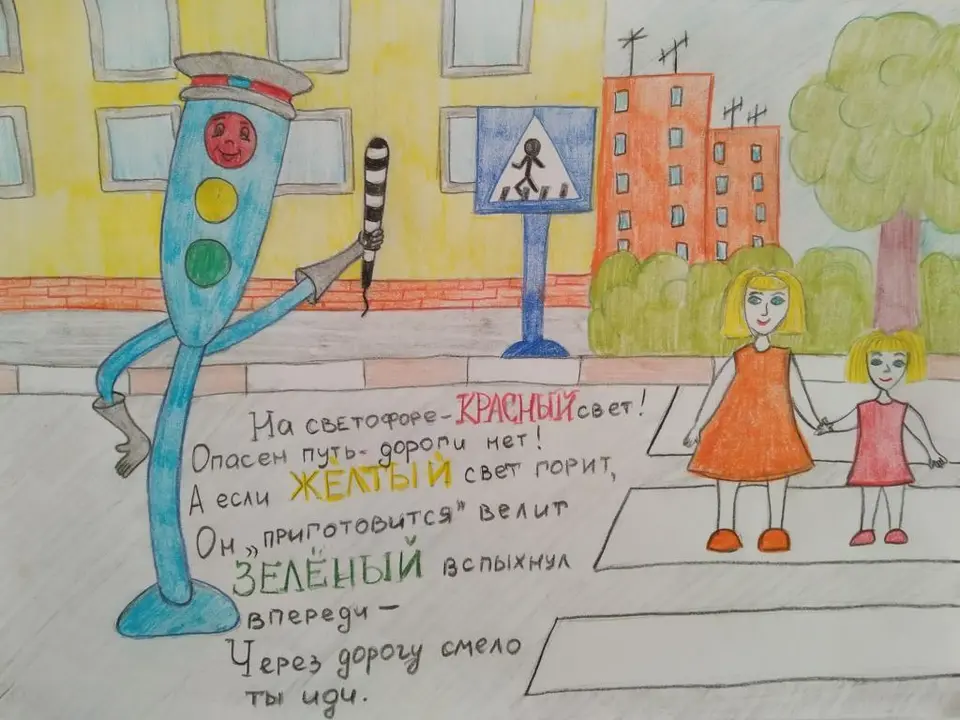 На светофоре - КРАСНЫЙ свет!
Опасен путь - дороги нет!
А если ЖЁЛТЫЙ свет горит,
Он „приготовится" велит
ЗЕЛЁНЫЙ вспыхнул
впереди —
Через дорогу смело
ты иди.